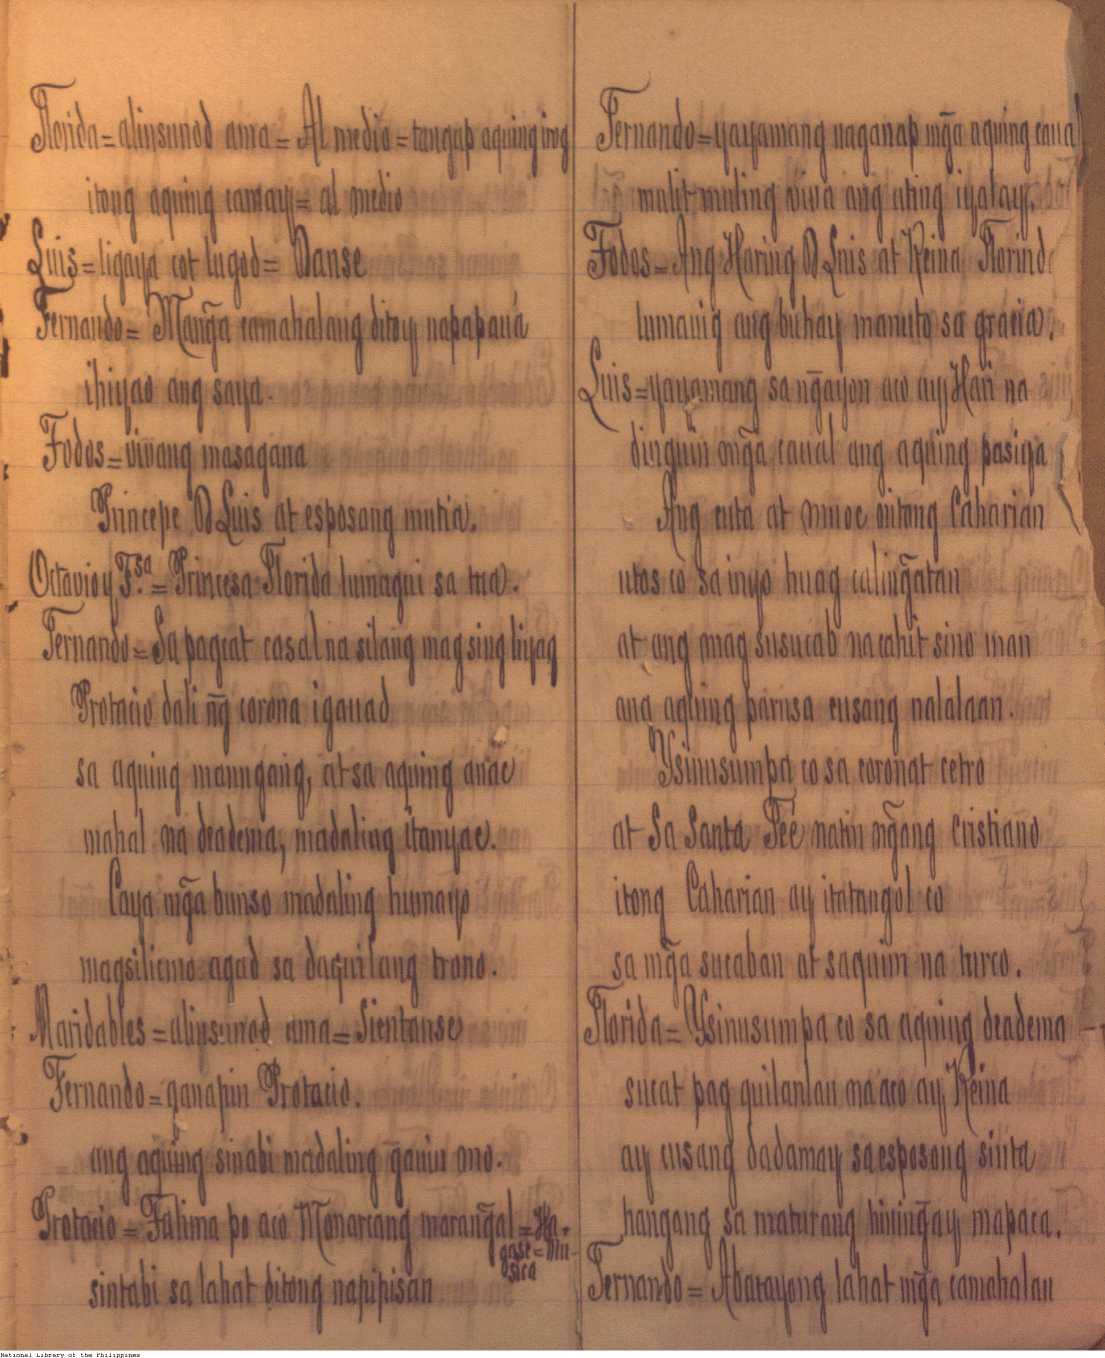 Florida = alinsunod ama = Al medio = tangap aquing irog
itong aquing camay = al medio
Luis = ligaya cot lugod = Danse
Fernando = Manga camahalang ditoy napapaua
ihiyao ang saya.
Todos = vivang masagana
Principe D Luis at esposang mutia.
Octavio y F.sa = Princesa Florida lumagui sa tua.
Fernando = Sa pagcat casal na silang mag sing liyag
Protacio dali ng̃ corona igauad
sa aquing manugang, at sa aquing anac
mahal na deadema, madaling itanyac.
Caya mg̃a bunso madaling humayo
magsilicmo agad sa daquilang trono.
Maridables = alinsunod ama = Sientanse
Fernando = ganapin Protacio.
ang aquing sinabi madaling g̃auin mo.
Protacio = Fatima po aco Monarcang marang̃al = Ha-
gase = Mu-
sica
sintabi sa lahat ditong napipisan
Fernando = yayamang naganap mg̃a aquing caua
mulit muling viva ang ating iyalay.
Todos = Ang Haring D Luis at Reina Florind
lumauig ang buhay manuto sa gracia.
Luis = yayamang sa ng̃ayon aco ay Hari na
dinguin mg̃a caual ang aquing pasiya
Ang cuta at muoc nitong Caharian
utos co sa inyo huag caling̃atan
at ang mag susucab na cahit sino man
ang aquing parusa cusang nalalaan.
Ysinusumpa co sa coronat cetro
at Sa Santa Feé natin mg̃ang Cristiano
itong Caharian ay itatangol co
sa mg̃a sucaban at saquim na turco.
Florida = Ysinusumpa co sa aquing deadema
sucat pag quilanlan na aco ay Reina
ay cusang dadamay sa esposong sinta
hangang sa maturang hining̃ay mapaca.
Fernando = Abatayong lahat mg̃a camahalan
National Library of the Philippines